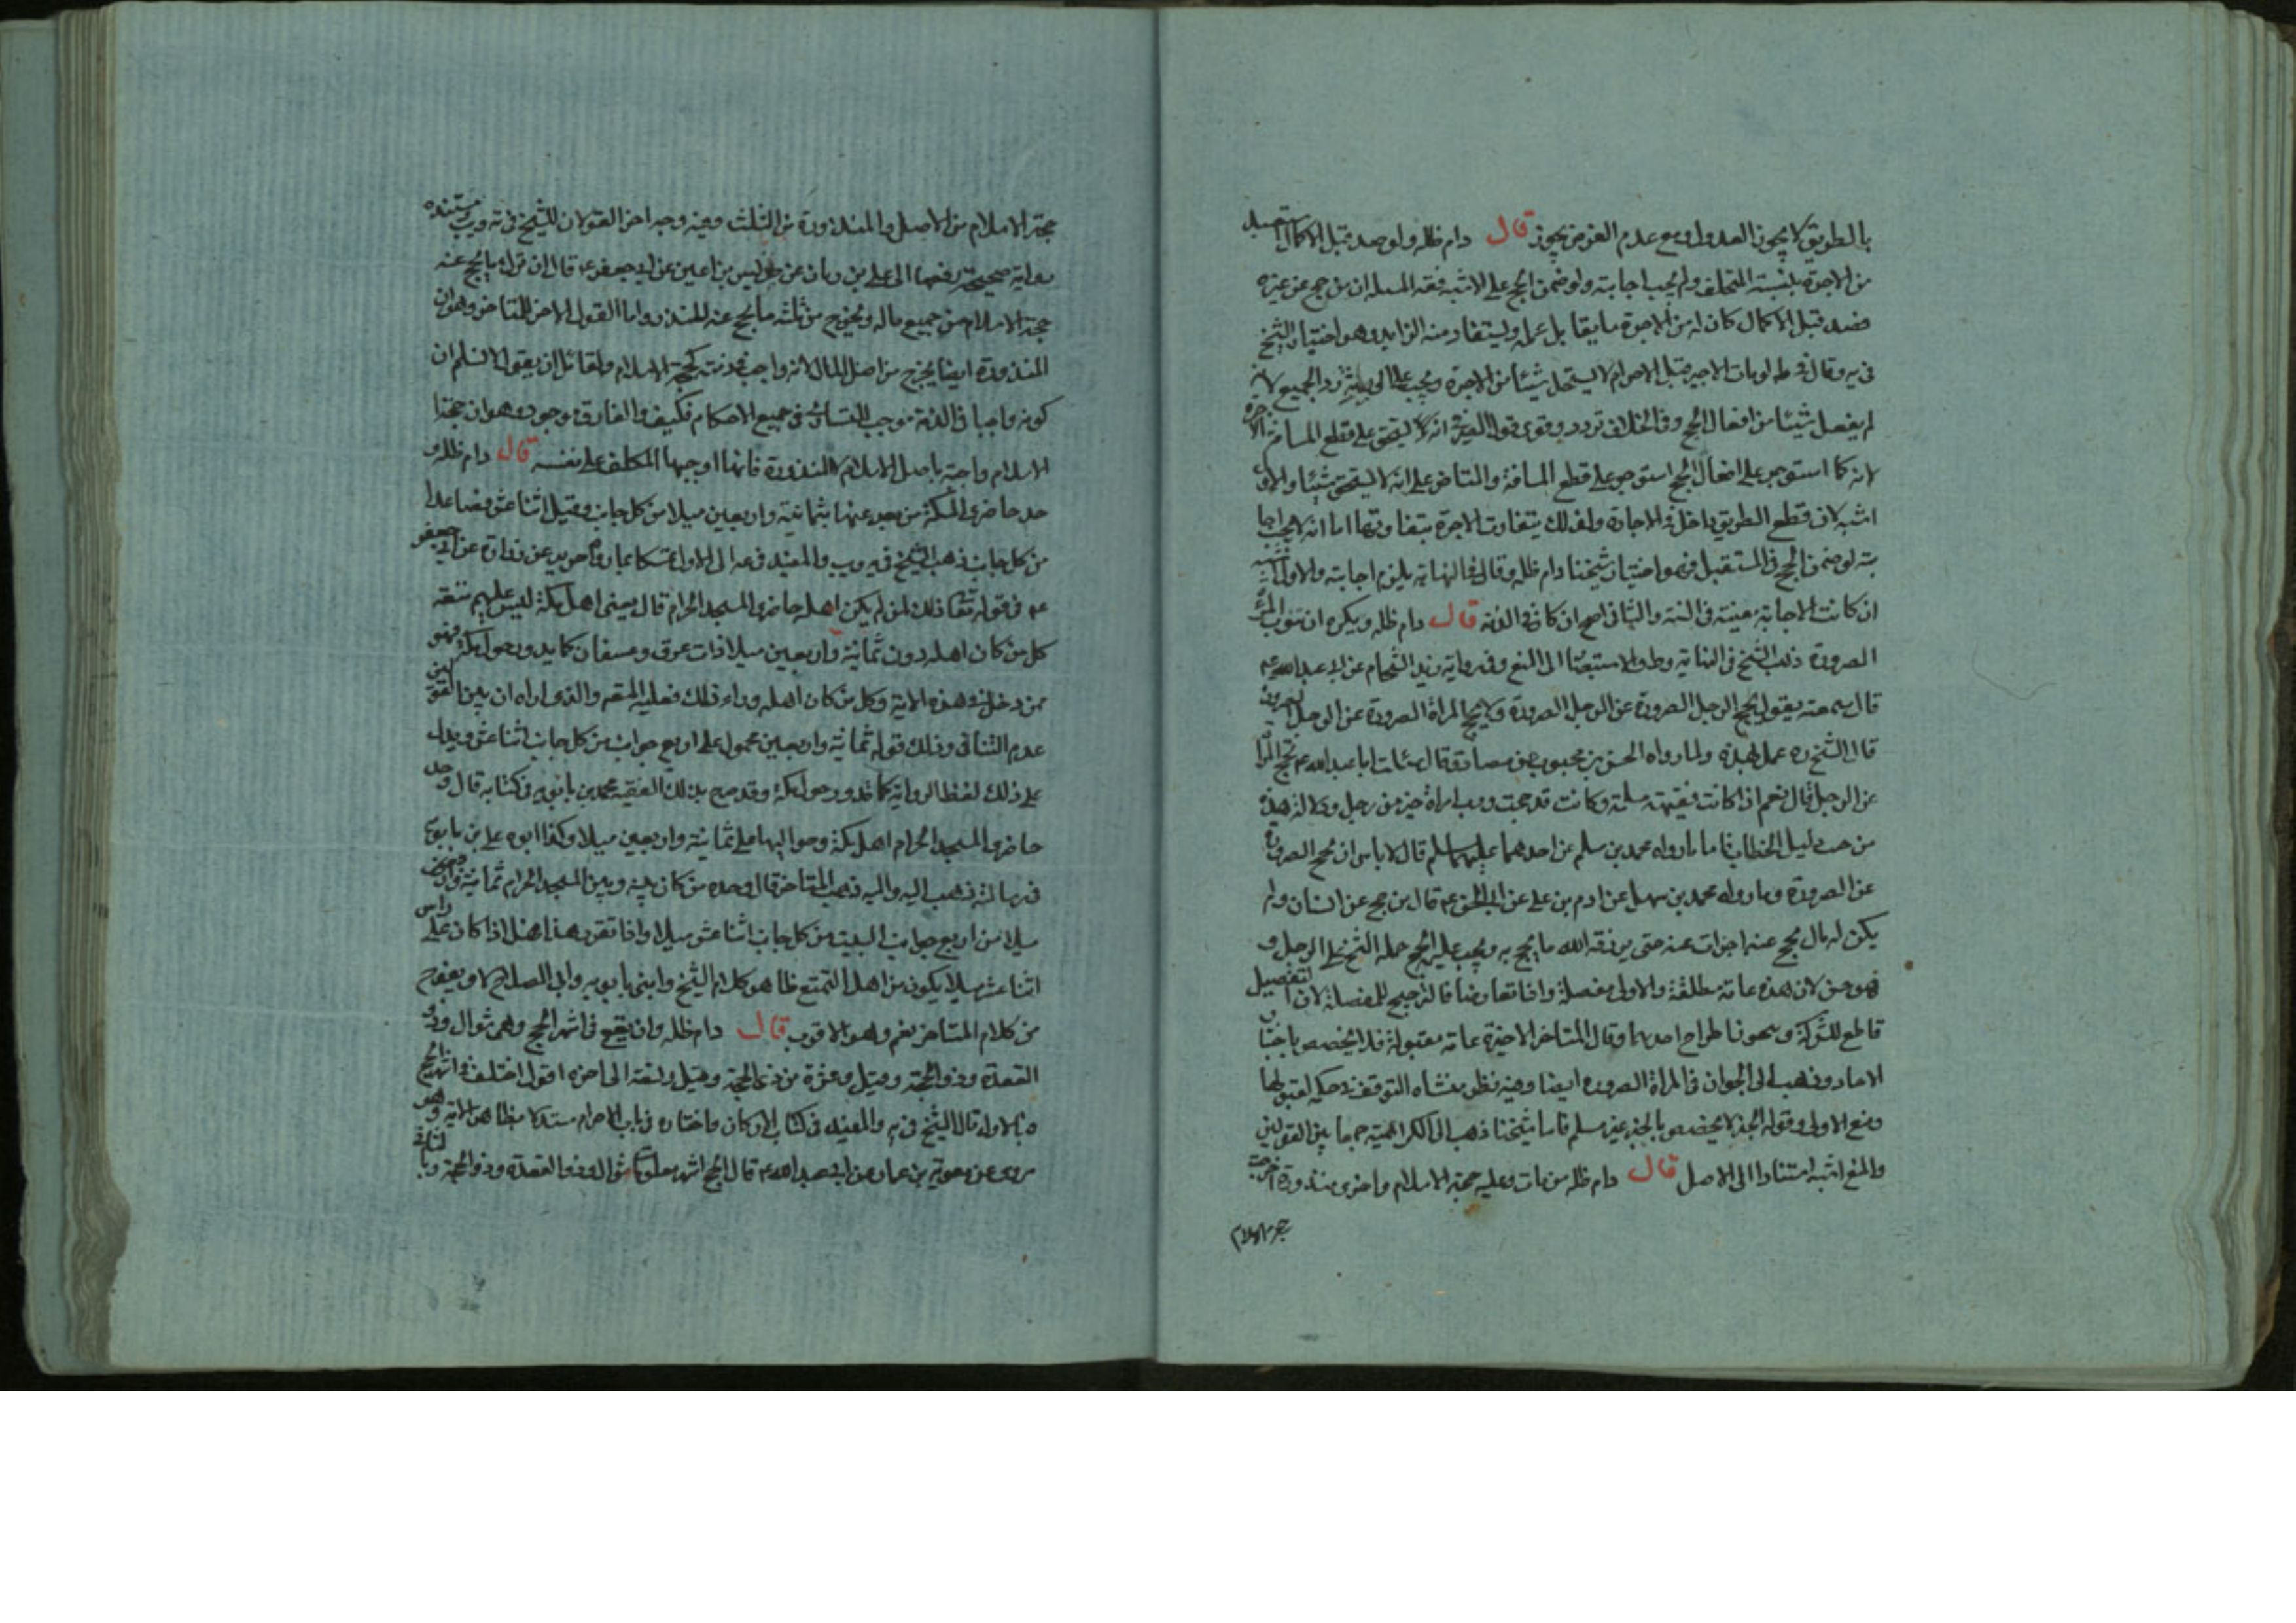 بالطريق لا يجوز العدول ومع عدم الغرض يجوز قال دام ظله ولو صد قبل الاكمال استعيد
من الاجرة بنسبة المتخلف ولم يجب اجابته ولو ضمن الحج على الاشبه فقه المسله ان من حج عن غيره
فصد قبل الاكمال كان له من الاجرة ما يقابل عمله ويستفاد منه الزايد وهو اختيار الشيخ
في يه وقال في ط لو مات الاجير قبل الاحرام لا يستحق شيئا من الاجرة ويجب على رد الجميع لانه
لم يفعل شيئا من افعال الحج وفي الخلاف تردد وقوى قول انه لا يستحق على قطع المسافة الاجرة
لانه كما استوجر على افعال الحج استوجر على قطع المسافة والمتاخر على انه لا يستحق شيئا والاول
اشبه لان قطع الطريق داخل في الاجارة ولذلك يتفاوت الاجرة بتفاوتها اما انه لا يجب اجا
بته لو ضمن الحج في المستقبل فهو اختيار شيخنا دام ظله وقال في النهاية يلزم اجابته والاول اشبه
ان كانت الاجابة معينة في السنة والثاني اصح ان كان في الذمة قال دام ظله ويكره ان تنوب المراة
الصرورة ذهب الشيخ في النهاية وط والاستبصار الى المنع وفي رواية زيد الشحام عن ابي عبد الله ع
قال سمعته يقول يحج الرجل الصرورة عن الرجل الصرورة ولا يحج المراة الصرورة عن الرجل الصرورة
قال الشيخ ره عمل بهذه ولما رواه الحسن بن محبوب عن مصادف قال سئلت ابا عبد الله ع تحج المراة
عن الرجل قال نعم اذا كانت فقيهة مسلمة وكانت قد حجت ورب امراة خير من رجل ودلالة هذه
من حيث دليل الخطاب فاما ما رواه محمد بن مسلم عن احدهما عليهما سلم قال لا باس ان يحج الصرورة
عن الصرورة وما رواه محمد بن سهل عن ادم بن علي عن ابي الحسن ع قال من حج عن انسان ولم
يكن له مال يحج عنه اجزات عنه حتى يرزقه الله ما يحج به ويجب عليه الحج حمله الشيخ على الرجل و
هو حسن لان هذه عامة مطلقة والاولى مفصلة واذا تعارضا فالترجيح للمفصلة لان التفصيل
قاطع للشركة وهو اطراح احدهما وقال المتاخر الاخيرة عامة مقبولة فلا يخصص باخبار
الاحاد وذهب الى الجواز في المراة الصرورة ايضا وفيه نظر منشاه التوقف في حكمه لقبولها
ومنع الاولى وقوله الخبر لا يخصص بالخبر غير مسلم فاما شيخنا ذهب الى الكراهية جمعا بين القولين
والمنع اشبه استنادا الى الاصل قال دام ظله من مات وعليه حجة الاسلام واخرى منذورة اخرجت
حجة الاسلام
حجة الاسلام من الاصل والمنذورة من الثلث وفيه وجه اخر القولان للشيخ في يه ويب ومستنده
رواية صحيحة رفعها الى علي بن رئاب عن ضريس بن اعين عن ابي جعفر ع قال ان ترك ما يحج عنه
حجة الاسلام من جميع ماله ويخرج من ثلثه ما يحج عنه للمنذور واما القول الاخر للمتاخر وهو ان
المنذورة ايضا يخرج من اصل المال لانه واجب في ذمته كحجة الاسلام ولقائل ان يقول لا نسلم ان
كونه واجبا في الذمة موجب للتساوي في جميع الاحكام فكيف والفارق موجود وهو ان حجة
الاسلام واجبة باصل الاسلام لا المنذورة فانها اوجبها المكلف على نفسه قال دام ظله و
حد حاضري المكة من بعد عنها بثمانية واربعين ميلا من كل جانب وقيل اثنا عشر فصاعدا
من كل جانب ذهب الشيخ في يه ويب والمفيد في عه الى الاول تمسكا بما رواه حريز عن زرارة عن ابي جعفر
ع في قوله تعا ذلك لمن لم يكن اهله حاضري المسجد الحرام قال يعني اهل مكة ليس عليهم متعه
كل من كان اهله دون ثمانية واربعين ميلا ذات عرق وعسفان كما يدور حول مكة فهو
ممن دخل في هذه الاية وكل من كان اهله وراء ذلك فعليه المتعه والذي اراه ان بين القولين
عدم التنافي وذلك قوله ثمانية واربعين محمول على اربع جوانب من كل جانب اثنا عشر ويدل
على ذلك لفظ الرواية كما يدور حول مكة وقد صرح بذلك الفقيه محمد بن بابويه في كتابه قال وحد
حاضري المسجد الحرام اهل مكة وحواليها على ثمانية واربعين ميلا وكذا ابوه علي بن بابويه
في رسالته ذهب اليه واليه ذهب المتاخر قال وحده من كان بينه وبين المسجد الحرام ثمانية واربعون
ميلا من اربع جوانب البيت من كل جانب اثنا عشر ميلا واذا تقرر هذا هل اذا كان على راس
اثنا عشر ميلا يكون من اهل التمتع ظاهر كلام الشيخ وابني بابويه وابي الصلاح لا ويفوح
من كلام المتاخر نعم وهو الاقرب قال دام ظله وان يقع في اشهر الحج وهي شوال وذو
القعدة وذو الحجة وقيل وعشرة من ذي الحجة وقيل وتسعة الى اخره اقول اختلف في اشهر الحج
فبالاول قال الشيخ في يه والمفيد في كتاب الاركان واختاره في باب الاحرام مستدلا بظاهر الاية وهو
مروي عن معوية بن عمار عن ابي عبد الله ع قال الحج اشهر معلومات شوال وذو القعدة وذو الحجة وبالثاني